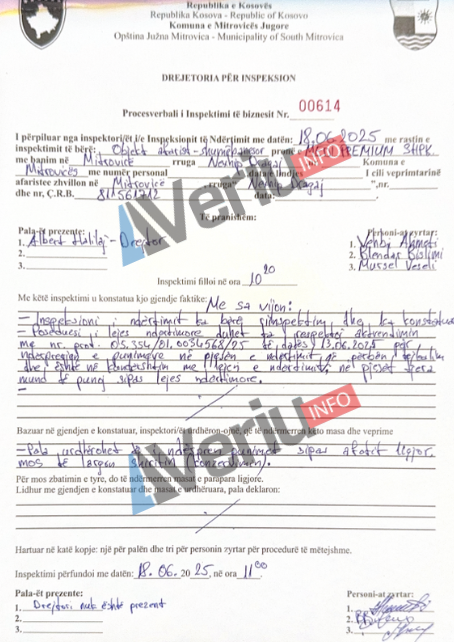 Republika e Kosovës
Republika Kosova - Republic of Kosovo
Komuna e Mitrovicës Jugore
Opština Južna Mitrovica - Municipality of South Mitrovica
DREJTORIA PËR INSPEKSION
Procesverbali i Inspektimi të biznesit Nr. 00614
I përpiluar nga inspektori/ët i/e Inspeksionit të Ndërtimit me datën: 18.06.2025 me rastin e
inspektimit të bërë: Objekt afarist - shumëbanesor pronë e PREMIUM SHPK.
me banim në Mitrovicë rruga Nexhip Dragaj Komuna e
Mitrovicës me numër personal data e lindjes I cili veprimtarinë
afariste zhvillon në Mitrovicë rruga Nexhip Dragaj nr.
dhe nr, Ç.R.B. data:
Të pranishëm:
Pala-ët prezente:
Përsoni-at zyrtar:
1. Albert Halilaj - Drejtor
2.
3.
1. Vehbi Ahmeti
2. Blendar Bislimi
3. Mursel Veseli
Inspektimi filloi në ora 10 20
Me këtë inspektimi u konstatua kjo gjendje faktike: Me sa vijon:
- Inspeksioni i ndërtimit ka bërë dhe ka konstatuar
- Poseduesi i lejes ndërtimore duhet ta respektoj
me nr. prot. 05.354/01.0034568/25 të datës 13.06.2025 për
e punimeve në pjesën e ndërtimit që
dhe është në kundershtim me lejen e ndertimit, në pjeset tjera
mund të punoj sipas lejes ndërtimore.
Bazuar në gjendjen e konstatuar, inspektori/ët urdhëron-ojnë, që të ndërmerren këto masa dhe veprime
- Pala urdhërohet punimet sipas afatit ligjor
mos të largoj shiritin
Për mos zbatimin e tyre, do të ndërmerren masat e parapara ligjore.
Lidhur me gjendjen e konstatuar dhe masat e urdhëruara, pala deklaron:
Hartuar në katë kopje: një për palën dhe tri për personin zyrtar për procedurë të mëtejshme.
Inspektimi përfundoi me datën: 18.06.2025, në ora 11 00
Pala-ët prezente:
Personi-at zyrtar:
1. Drejtori nuk është prezent
2.
3.
1.
2.
3.
Veriu INFO
Veriu INFO